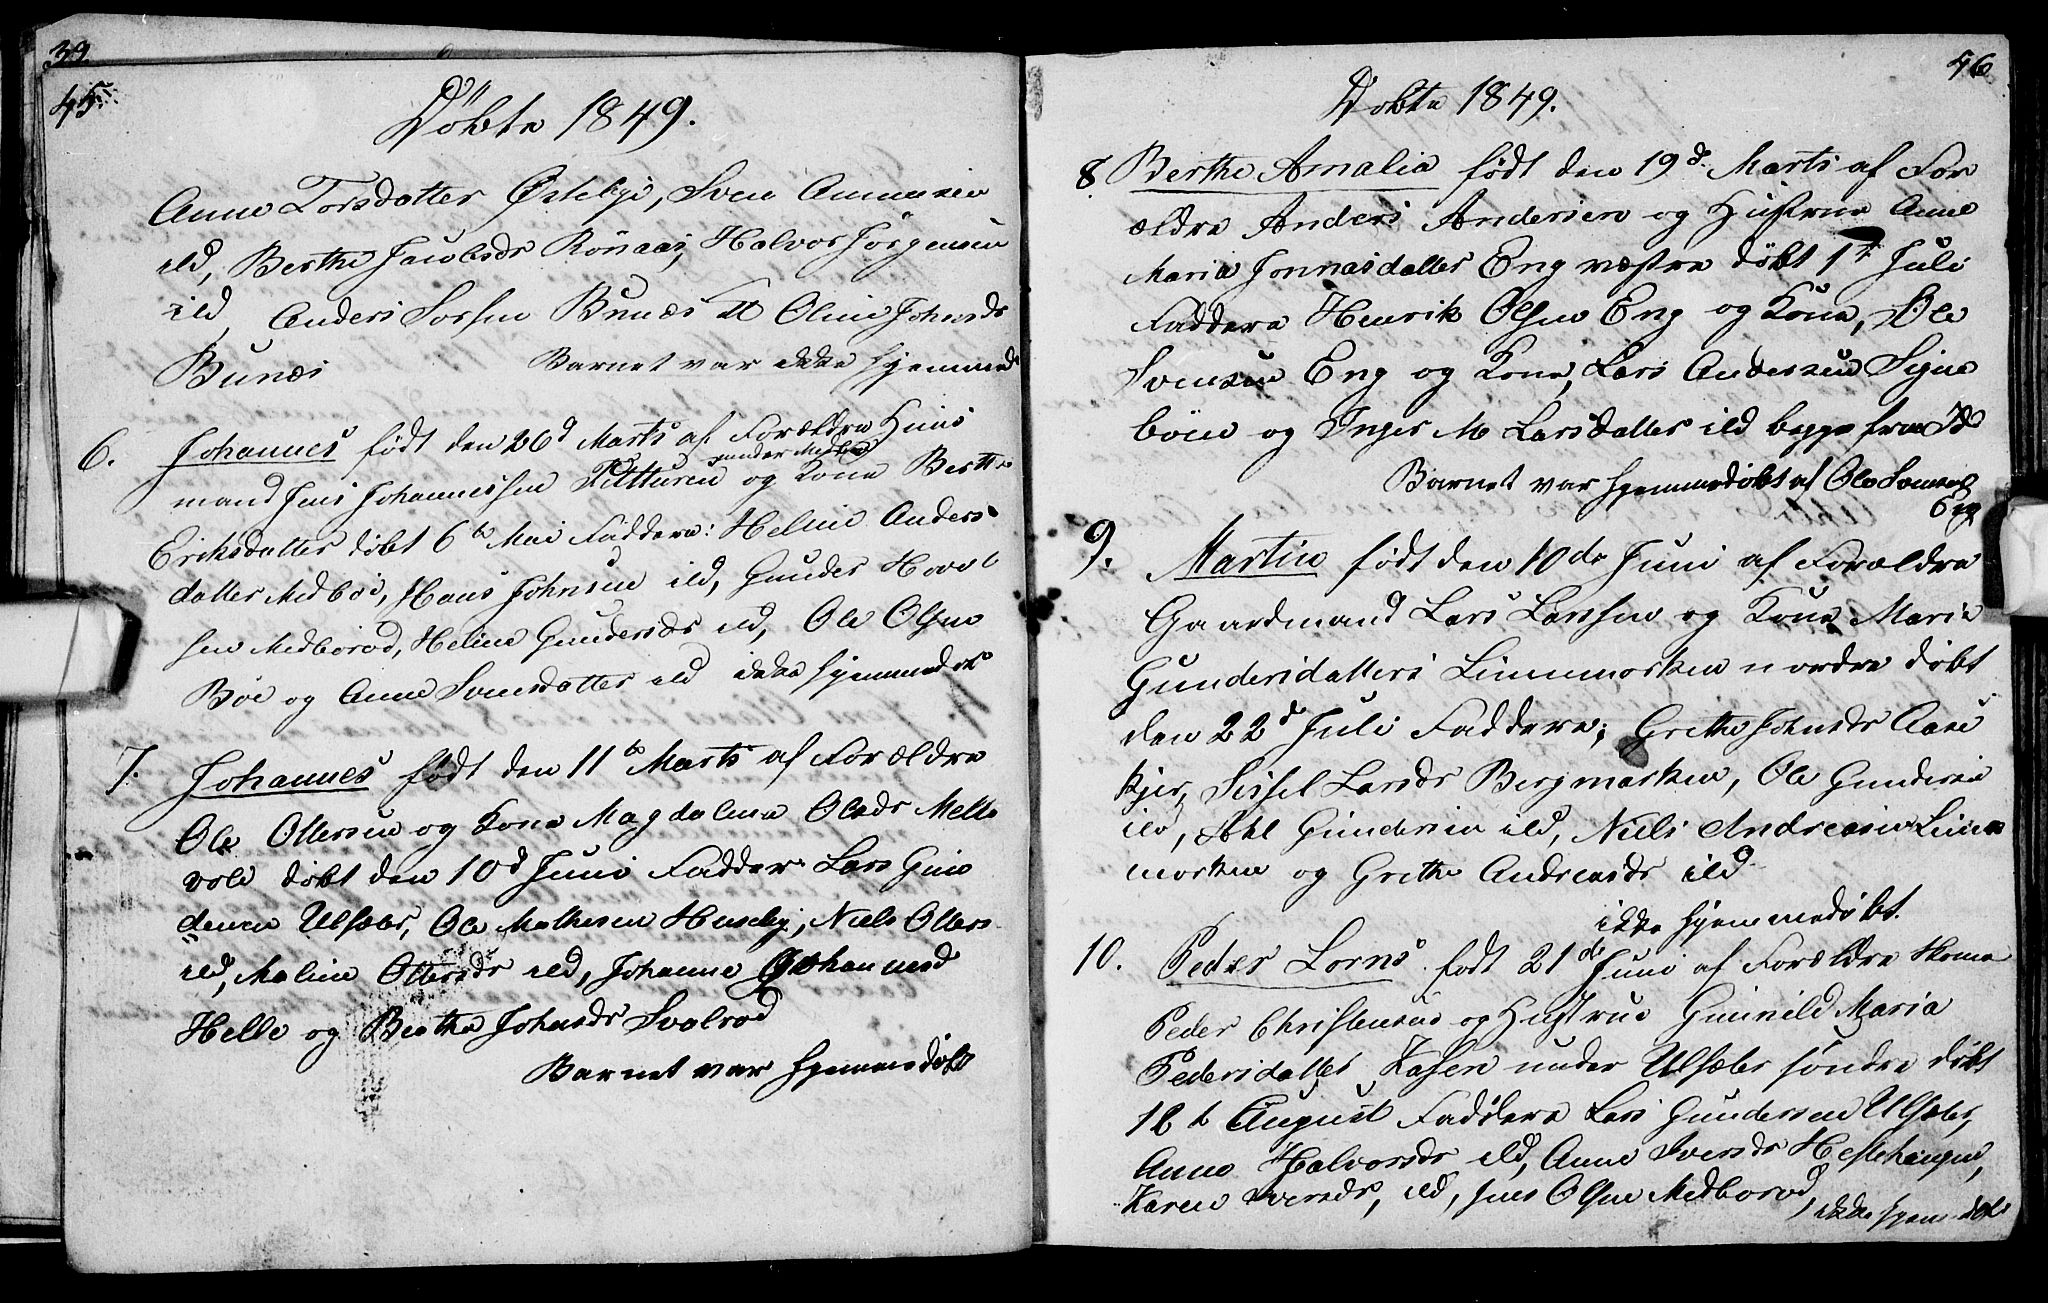 39
45.
Döbte 1849.
Anne Torsdatter Östebye, Sven Amunsen
ild, Berthe Jacobsds Rönaas, Halvor Jörgensen
ild, Anders Lorsen Bunæs & Oline Johnsds
Bunæs Barnet var ikke hjemmed
6. Johannes født den 26d Marts af Forældre Huus
under Medbøe
mand Jens Johannessen og Kone Berthe
Eriksdatter döbt 6te Mai Faddere: Heline Anders
datter Medböe, Hans Johnsen ild, Gunder Hovel
sen Medborød, Heline Gundersds ild, Ole Olsen
Böe og Anne Svensdatter ild ikke hjemmedöb
7. Johannes født den 11te Marts af Forældre
Ole Ottersen og Kone Magdalena Olsds Melle
vold döbt den 10d Juni Fadder Lars Gun
dersen Ulsæter, Ole Mathesen Huseby, Niels Otters
ild, Maline Ottersds ild, Johanne Johannesd
Helle og Berthe Johnsds Svalrød
Barnet var hjemmedöbt
46
Dobte 1849.
8 Berthe Amalia født den 19d Marts af For
ældre Anders Andersen og Hustrue Anne
Maria Jonnasdatter Eng vestre döbt 1te Juli
Faddere Henrik Olsen Eng og Kone, Ole
Svensen Eng og Kone, Lars Andersen Signe
böen og Inger M Larsdatter ild begge fra Ids
Barnet var hjemmedöbt af Ole Svensen
Eng
9. Martin født den 10de Juni af Forældre
Gaardmand Lars Larssen og Kone Maria
Gundersdatters Linnmorken nordre döbt
den 22d Juli Faddere; Grethe Johnsds Aase
kjer, Sissel Larsds Bergmorken, Ole Gundersen
ild, Abl Gundersen ild, Niels Andreasen Linn
morken og Grethe Andreasds ild
ikke hjemmedöbt.
10. Peder Lorns. født 21de Juni af Forældre Skoma
Peder Christensen og Hustrue Gunnild Maria
Pedersdatter Kasen under Ulsæter søndre döbt
12t August Faddere Lars Gundersen Ulsæter,
Anne Halvorsds ild, Anne Iversds Hestehaugen,
Karen Iversds, ild, Jens Olsen Medborød,
ikke hjemdöbt